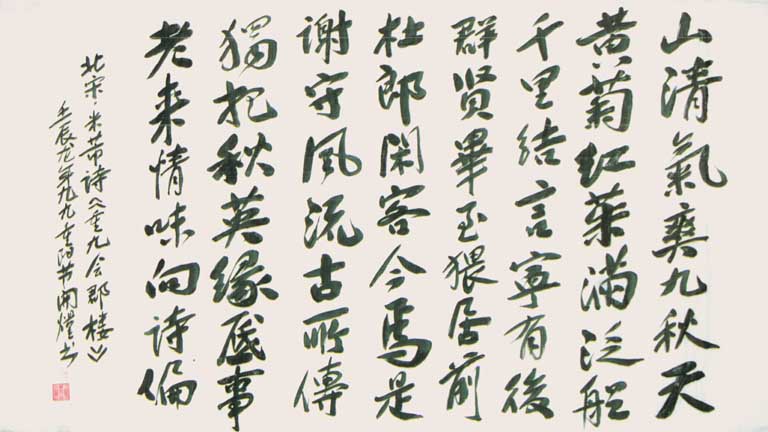 山清氣爽九秋天
黄菊红茱满泛船
千里结言寧有後
群贤畢至猥居前
杜郎閑客今焉是
谢守风流古所傳
獨把秋英缘底事
老来情味向诗偏
北宋·米芾诗《重九会郡楼》
壬辰龙年九九重阳节 书